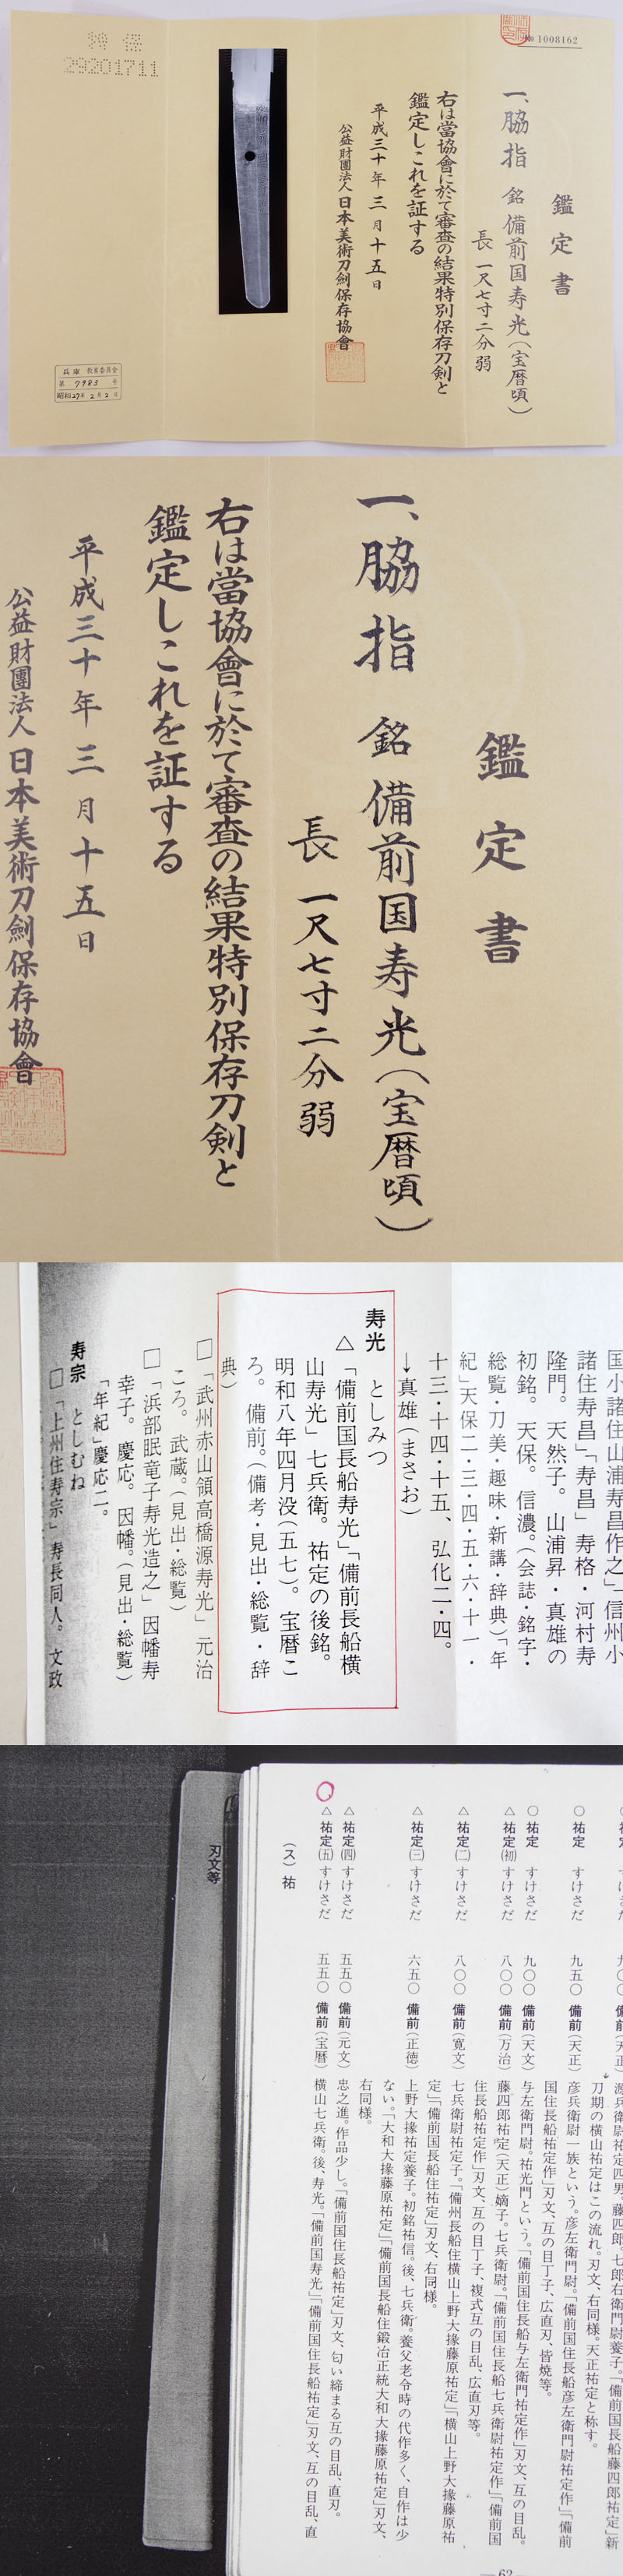 № 1008162
鑑定書
一、脇指 銘 備前国寿光(宝暦頃)
長 一尺七寸二分弱
右は當協會に於て審査の結果特別保存刀剣と
鑑定しこれを証する
平成三十年三月十五日
公益財團法人日本美術刀劍保存協會
特 保
29201711
兵庫 教育委員会
第 7983 号
昭和27年2月2日
鑑定書
一、脇指 銘 備前国寿光(宝暦頃)
長 一尺七寸二分弱
右は當協會に於て審査の結果特別保存刀剣と
鑑定しこれを証する
平成三十年三月十五日
公益財團法人日本美術刀劍保存協會
国小諸住山浦寿昌作之」「信州小
諸住寿昌」「寿昌」寿格・河村寿
隆門。天然子。山浦昇・真雄の
初銘。天保。信濃。(会誌・銘字・
総覧・刀美・趣味・新講・辞典)「年
紀」天保二・三・四・五・六・十一・
十三・十四・十五、弘化二・四。
↓真雄(まさお)
寿光 としみつ
△「備前国長船寿光」「備前長船横
山寿光」七兵衛。祐定の後銘。
明和八年四月没(五七)。宝暦こ
ろ。備前。(備考・見出・総覧・辞
典)
□「武州赤山領高橋源寿光」元治
ころ。武蔵。(見出・総覧)
□「浜部眠竜子寿光造之」因幡寿
幸子。慶応。因幡。(見出・総覧)
「年紀」慶応二。
寿宗 としむね
□「上州住寿宗」寿長同人。文政
源兵衛尉祐定四男、藤四郎。七郎右衛門尉養子。「備前国長船藤四郎祐定」新
刀期の横山祐定はこの流れ。刃文、右同様。天正祐定と称す。
○祐定 すけさだ 九五〇 備前(天正) 彦兵衛尉一族という。彦左衛門尉。「備前国住長船彦左衛門尉祐定作」「備前
国住長船祐定作」刃文、互の目丁子、広直刃、皆焼等。
○祐定 すけさだ 九〇〇 備前(天文) 与左衛門尉。祐光門という。「備前国住長船与左衛門祐定作」刃文、互の目乱。
△祐定(初) すけさだ 八〇〇 備前(万治) 藤四郎祐定(天正)嫡子。七兵衛尉。「備前国住長船七兵衛尉祐定作」「備前国
住長船祐定作」刃文、互の目丁子、複式互の目乱、広直刃等。
△祐定(二) すけさだ 八〇〇 備前(寛文) 七兵衛尉祐定子。「備州長船住横山上野大掾藤原祐定」「横山上野大掾藤原祐
定」「備前国長船住祐定」刃文、右同様。
△祐定(三) すけさだ 六五〇 備前(正徳) 上野大掾祐定養子。初銘祐信。後、七兵衛。養父老令時の代作多く、自作は少
ない。「大和大掾藤原祐定」「備前国長船住鍛冶正統大和大掾藤原祐定」刃文、
右同様。
△祐定(四) すけさだ 五五〇 備前(元文) 忠之進。作品少し。「備前国住長船祐定」刃文、匂い締まる互の目乱、直刃。
△祐定(五) すけさだ 五五〇 備前(宝暦) 横山七兵衛。後、寿光。「備前国寿光」「備前国住長船祐定」刃文、互の目乱、直
(ス)祐
刃文等
62